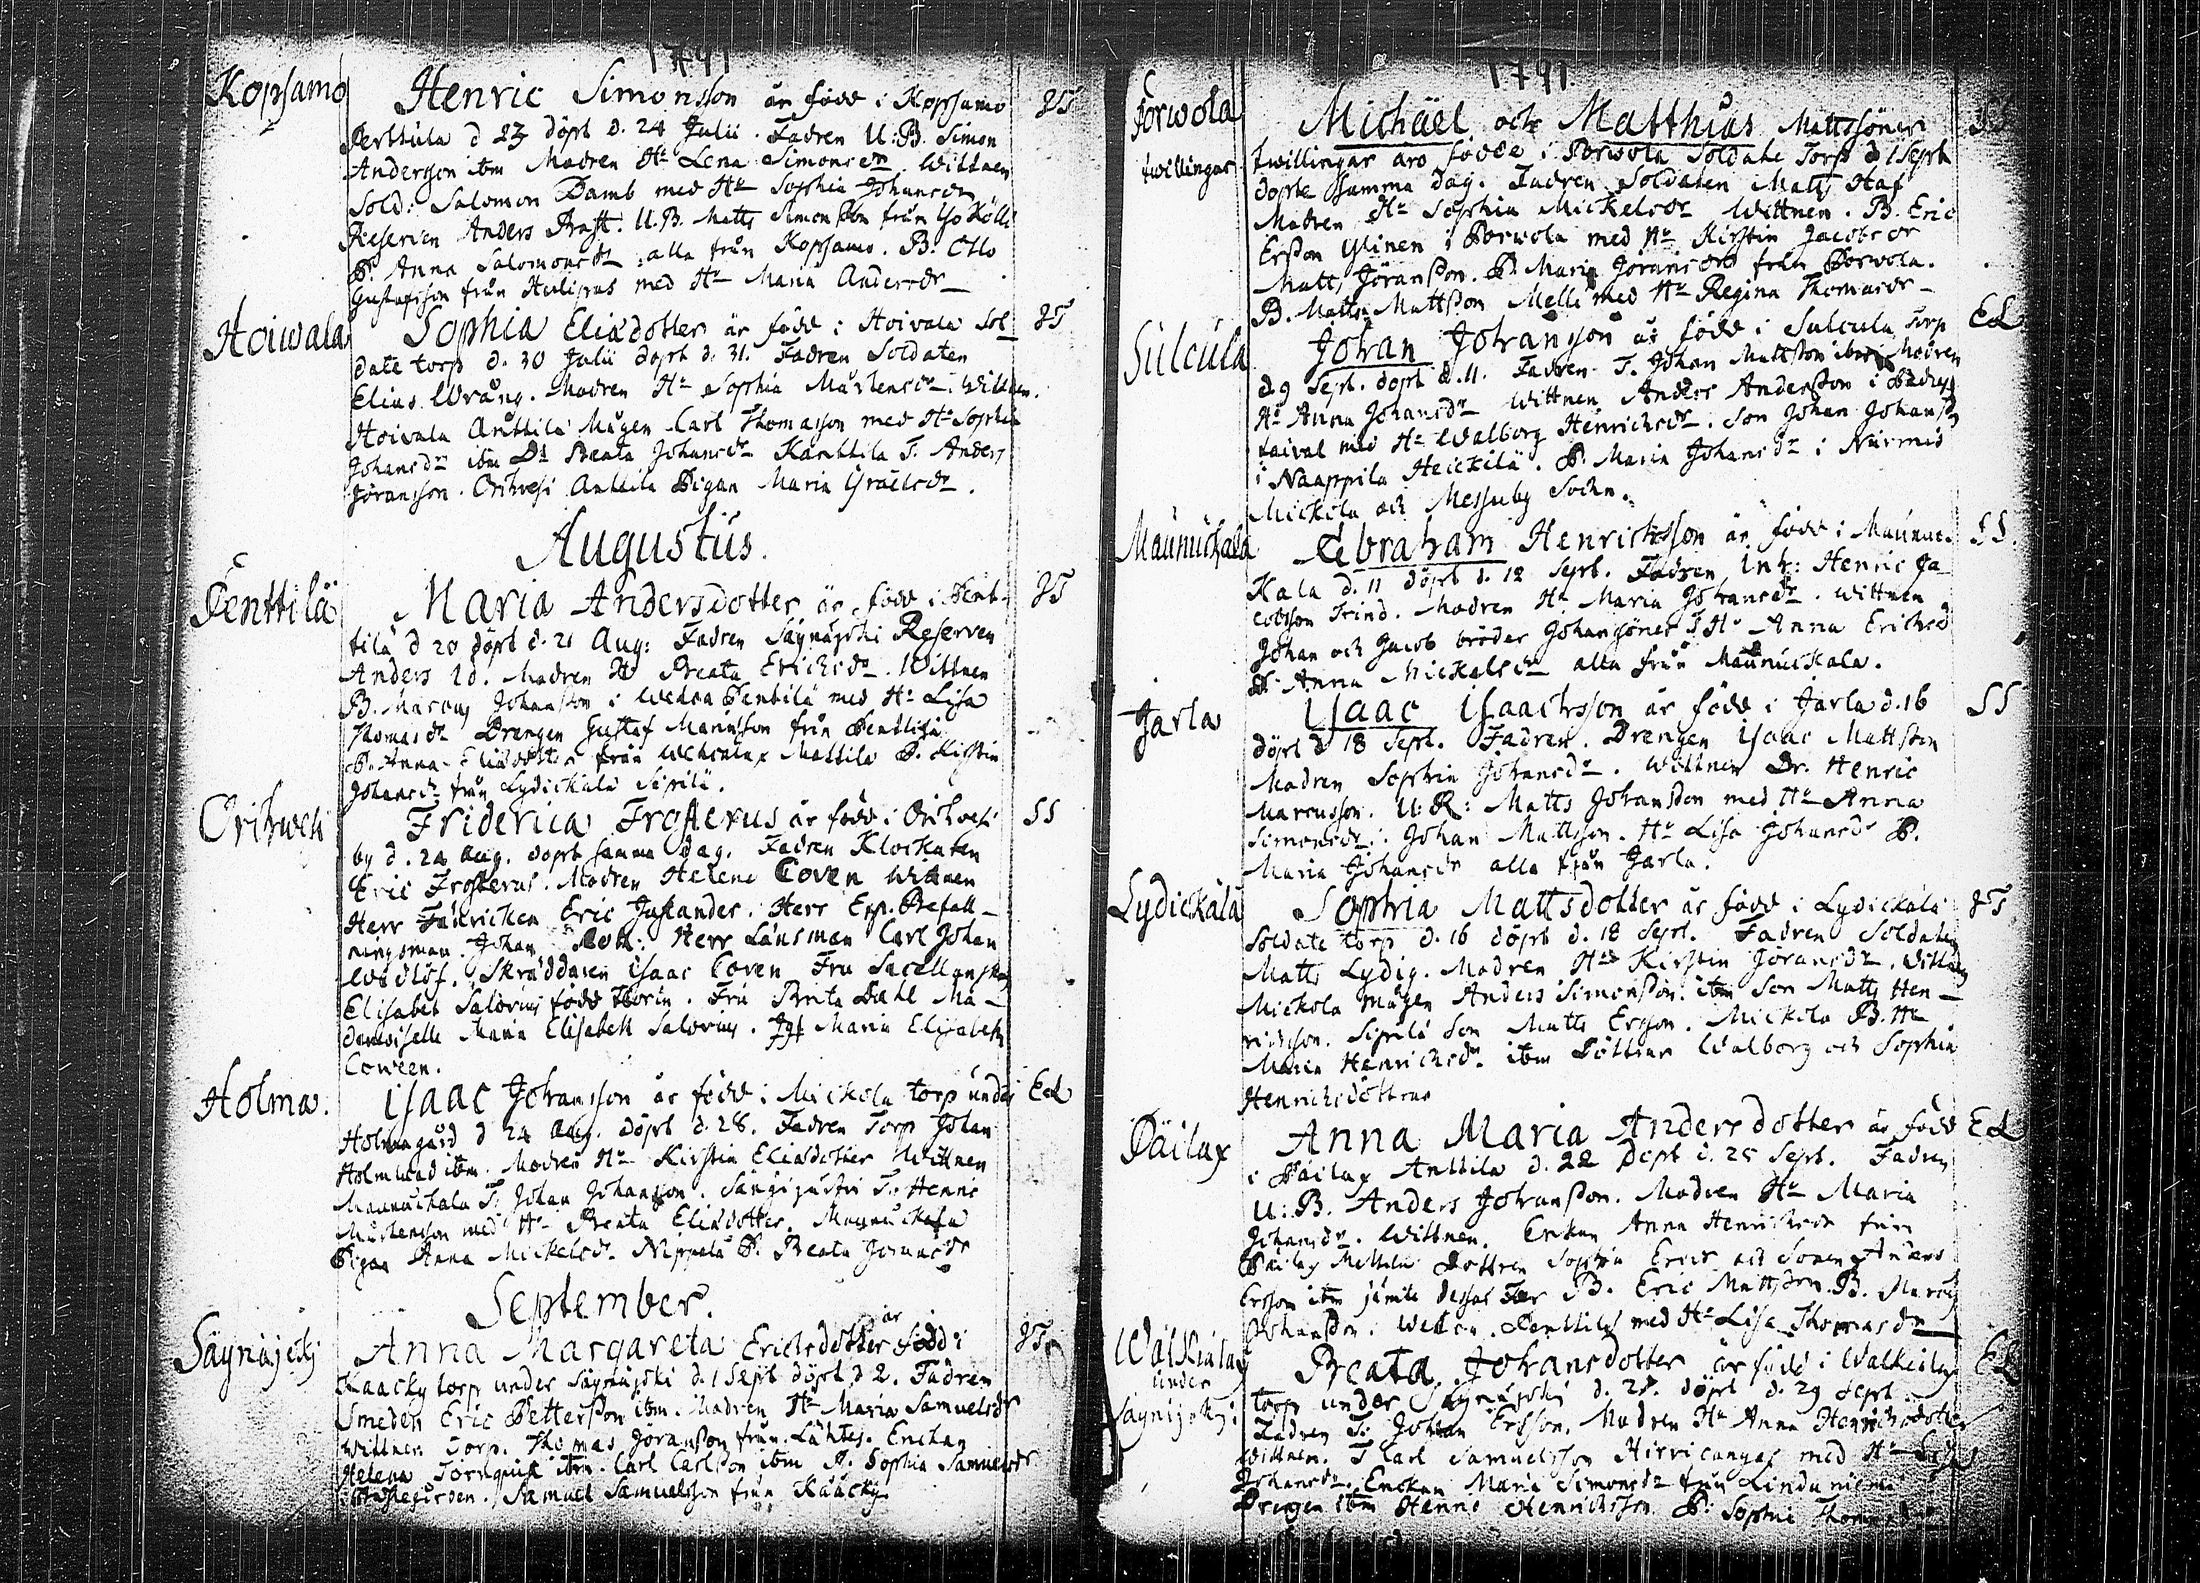 1791
Kopsamo Henric Simonsson är född i Kopsamo JT
Perttula d 23 döpt d. 24 Julii. Fadren U:B. Simon
Andersson ibm Modren Hu Lena Simonsdr Wittnen
Sold: Salomon Damb med Hu Sophia Johansdr
Reserven Anders Braft. U.B. Matts Simonsson från
P. Anna Salomonsdr alla från Kopsamo. B. Otto
Gustafsson från Hulipas med Hu Maria Andersdr
Hoiwala Sophia Eliædotter är född i Hoivala Sol JT
date torp d. 30 Julii döpt d. 31. Fadren Soldaten
Elias Wrång. Modren Hu Sophia Mårtensdr. Wittnen.
Hoivala Anttila Mågen Carl Thomasson med Hu Sophia
Johansdr ibm Dr Beata Johansdr Karttila T. Anders
Jöransson. Orihvesi Anttila Pigan Maria Israelsdr.
Augustus.
Penttilä Maria Andersdotter är född i Pent- JT
tilä d 20 döpt d. 21 Aug: Fadren Säynäjoki Reserven
Anders Id. Modren Hu Beata Erichsdr. Wittnen
B. Marcus Johansson i Wedän Penttilä med Hu Lisa
Thomasdr Drengen Gustaf Mariæsson från Penttilä
P. Anna Eliædotter från Mattila P. Kirstin
Johansdr från Lydickälä Sipilä.
Orihwesi Friderica Frosterus är född i Orihvesi SS
by d. 24 Aug. döpt samma dag. Fadren Klockaren
Eric Frosterus. Modren Helene Coven Wittnen
Herr Fänricken Eric Justander. Herr Exp. Befall-
ningsman Johan Roth: Herr Länsman Carl Johan
Widlöf. Skräddaren Isaac Coven Fru Sacellanskan
Elisabet Salovius född Florin. Fru Brita Dahl Ma-
demoiselle Maria Elisabeth Salovius. Jgf Maria Elisabeth
Coween.
Holma. Isaac Johansson är född i Mickola torp under EL
Holmagård d 24 Aug. döpt d. 28. Fadren Torp Johan
Holmlund ibm. Modren Hu Kirstin Eliædotter Wittnen
Maunuckala T: Johan Johansson. T. Henric
Mårtensson med Hu Beata Eliædotter. Maunuckala
Pigan Anna Mickelsdr. Nippelä P. Beata Joransdr
September.
Säynäjoki Anna Margareta Erichsdotter är född i JT
Kaacky torp under Säynäjoki d. 1 Sept döpt d 2. Fadren
Smeden Eric Pettersson ibm. Modren Hu Maria Samuelsdr
Wittnen Torp. Thomas Jöransson från Lähtes. Enckan
Helena Törnquist ibm. Carl Carlsson ibm P. Sophia Samuelsdr
i Prestegården. Samuel Samuelsson från Kaacky
1791
Porwola Michäel och Matthias Mattssöner SS
twillingar twillingar äro födde i Porwola Soldate Torp d 1 Sept
döpte samma dag. Fadren Soldaten Matts Haf
Madren Hu Sophia Mickelsdr Wittnen. B. Eric
Ersson Ylinen i Porwola med Hu Kirstin Jacobsdr
Matts Jöransson. P. Maria Joransdr från Porwola.
B. Matts Mattsson Melli med Hu Regina Thomasdr
Sulcula Johan Johansson är född i Sulcula Torp EL
d. 9 Sept. döpt d. 11. Fadren T. Johan Mattsson ibm Modren
Hu Anna Johansdr Wittnen Anders Andersson i
taival med Hu Walborg Henrichsdr. Son Johan Johansson
i Naappila Heickilä. P. Maria Johansdr i Nurmis
Mickola och Messuby Sockn.
Maunuckala Abraham Henrichsson är född i Maunuc- SS.
kala d. 11 döpt d. 12 Sept. Fadren Inh: Henric Ja-
cobsson Frind. Modren Hu Maria Johansdr. Wittnen
Johan och Jacob bröder Johanssöner T Hu Anna Erichsd
P. Anna Mickelsdr alla från Maunuckala.
Jarla Isaac Isaachsson är född i Jarla d. 16 SS
döpt d 18 Sept. Fadren. Drengen Isaac Mattsson
Madren Sophia Johansdr. Wittnen Dr. Henric
Marcusson. U:R: Matts Johansson med Hu Anna
Simonsdr. Johan Mattsson. Hu Lisa Johansdr P.
Maria Johansdr alla från Jarla.
Lydickälä Sophia Mattsdotter är född i Lydickälä JT
Soldate torp d. 16 döpt d. 18 Sept. Fadren Soldaten
Matts Lydig. Modren Hu Kirstin Joransdr. Wittnen
Mickola Mågen Anders Simonsson. ibm Son Matts Hen-
richsson. Sipilä Son Matts Ersson. Mickola B. Hu
Maria Henrichsdr ibm Döttrar Walborg och Sophia
Henrichsdöttrar
Päilax Anna Maria Andersdotter är född EL
i Päilax Anttila d. 22 Döpt d. 25 Sept. Fadren
U:B. Anders Johansson. Modren Hu Maria
Johansdr. Wittnen. Enkan Anna Henricksdr från
Päilax Mattila Dottren Sophia Ericsd och Sonen Anders
Ersson ibm jämte dessas Far B. Eric Mattsson. B. Marcus
Johansson. Penttilä med Hu Lisa Thomasdr
Wälkiälax under Säynijoki: Beata Johansdotter är född i Walkeilax EL
torp under Säynäjoki d. 28. döpt d. 29 Sept
Fadren T: Johan Ersson. Modren Hu Anna Henrichsdotter
Wittnen. T Carl Samuelsson Hirvicangas med Hu
Johansdr. Enckan Maria Simonsdr från Linduniemi
Drengen ibm Henric Henricksson. P: Sophia